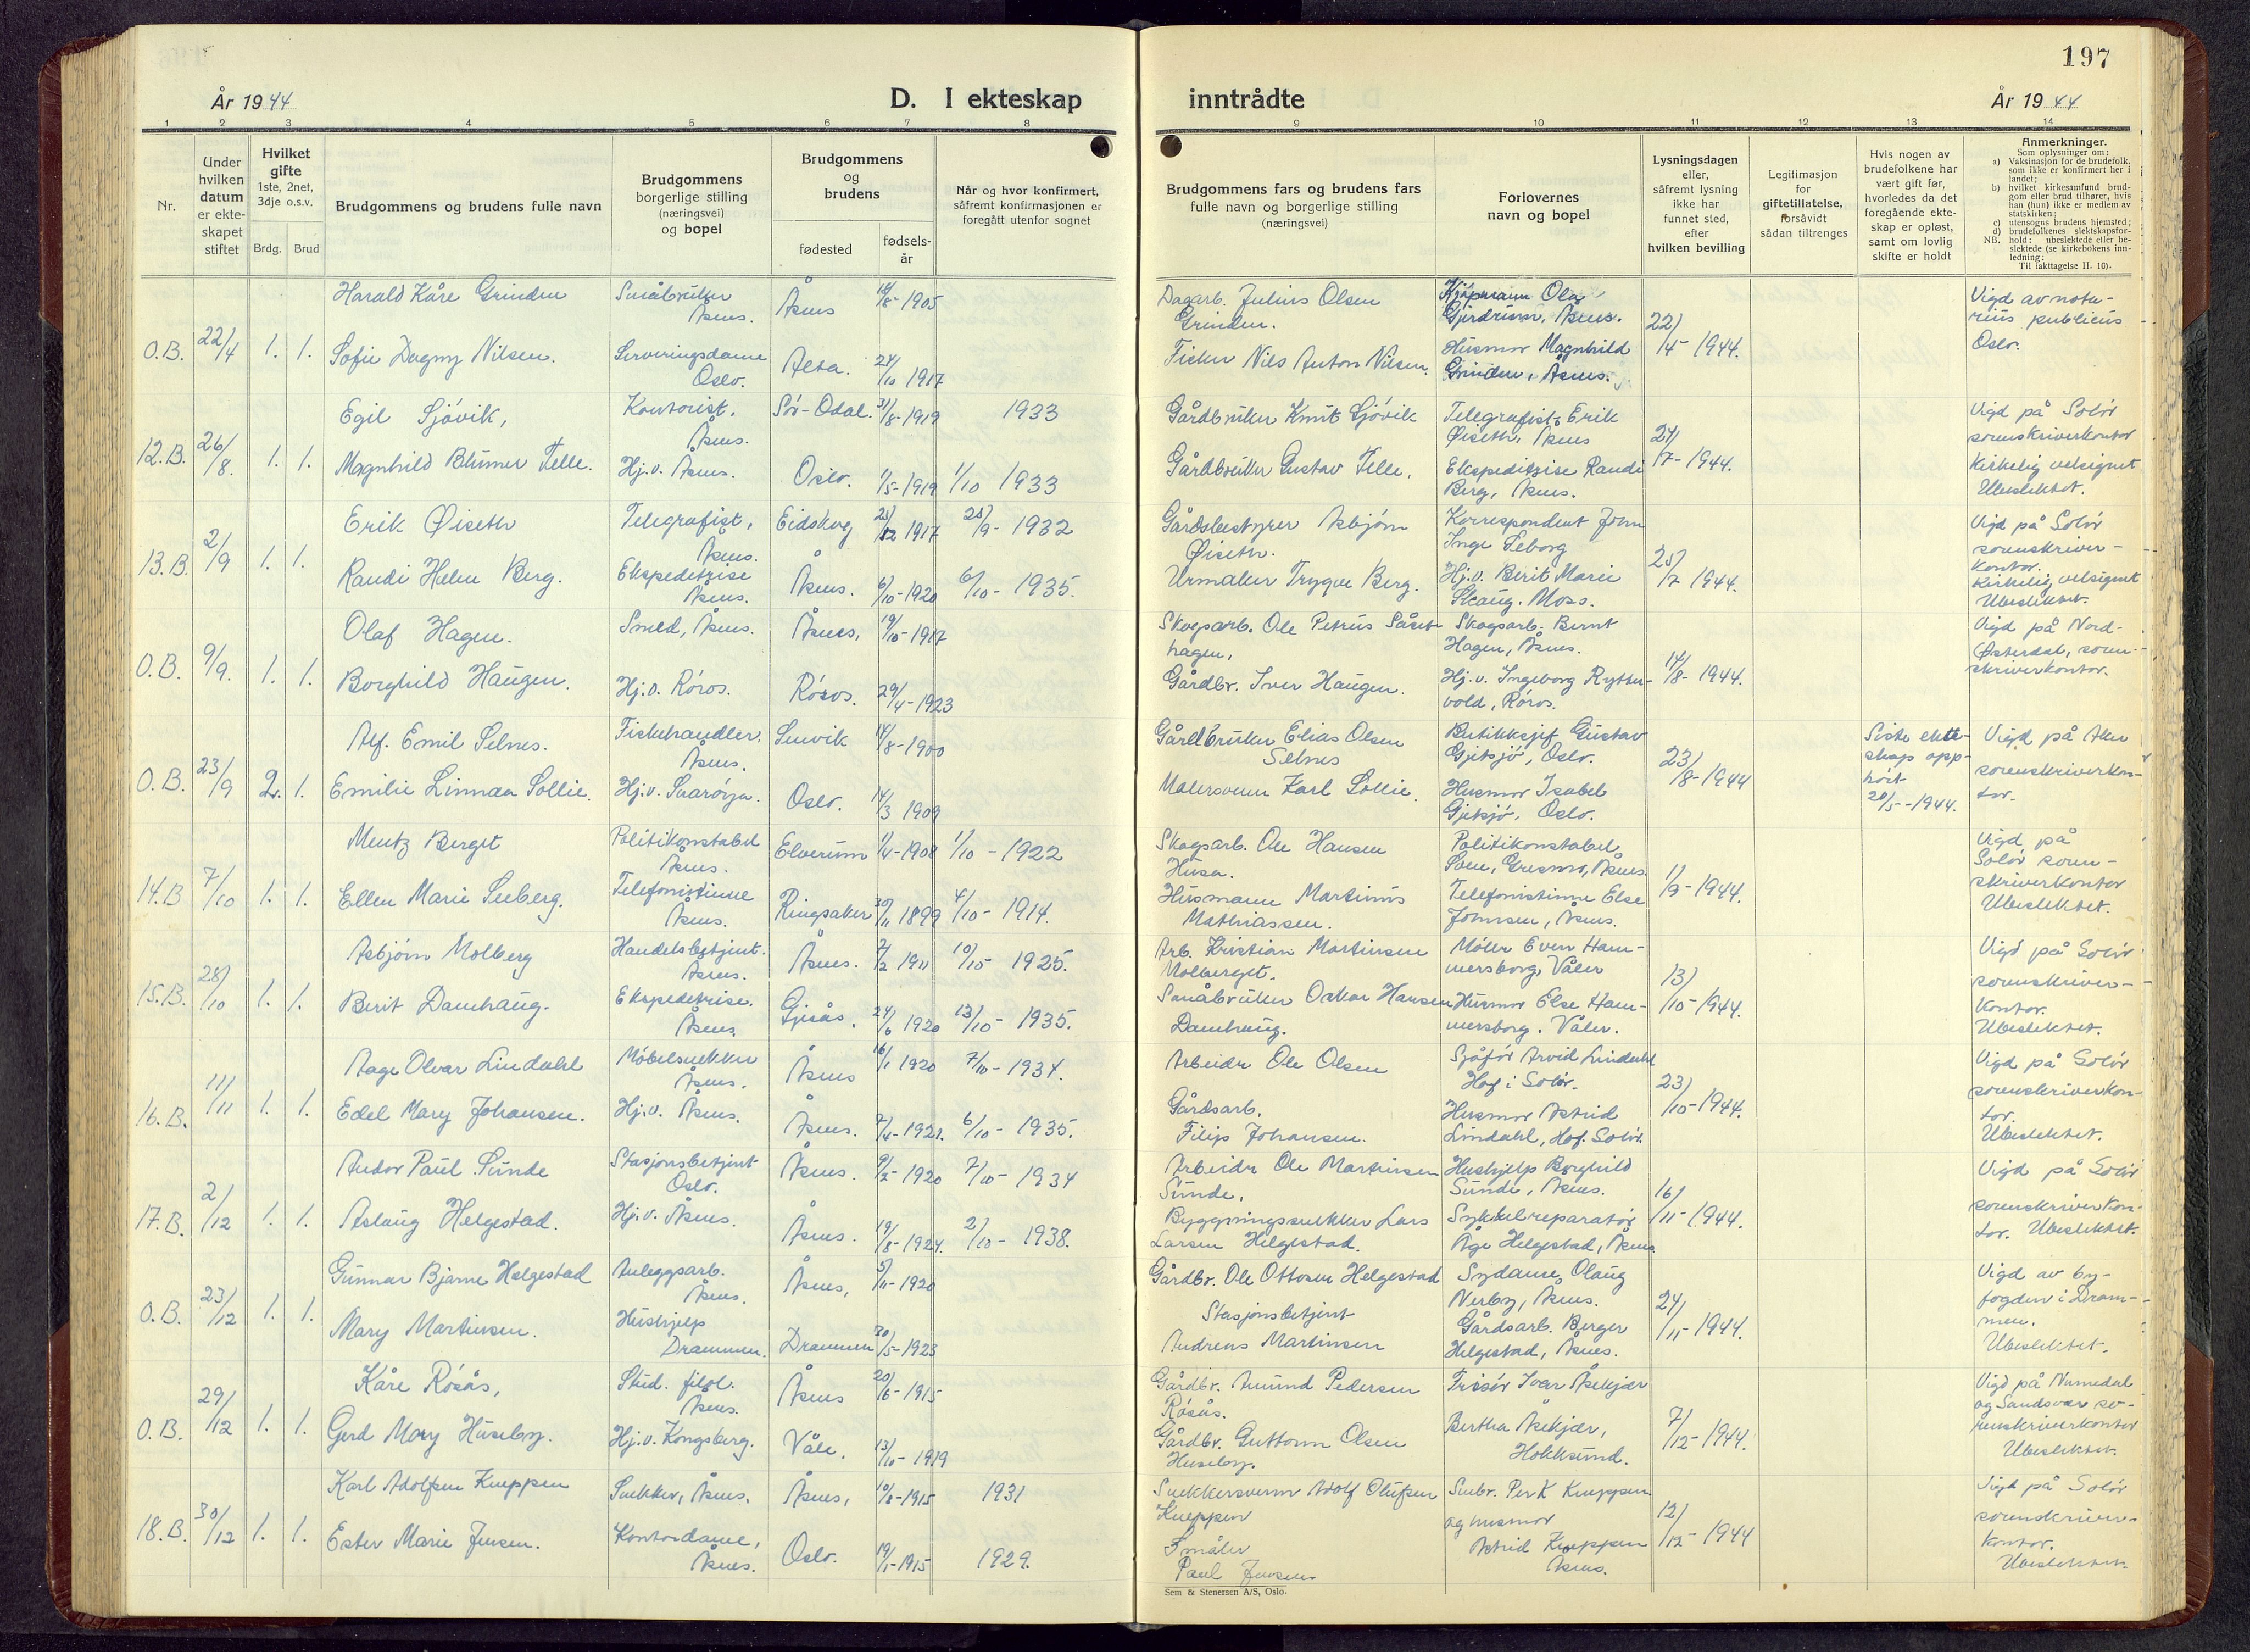 197
År 1944
D. I ekteskap
inntrådte
År 1944
1 2 3 4 5 6 7 8 9 10 11 12 13 14
Nr.
Under
hvilken
datum
er ekte-
skapet
stiftet
Hvilket
gifte
1ste, 2net,
3dje o.s.v.
Brdg. Brud
Brudgommens og brudens fulle navn
Brudgommens
borgerlige stilling
(næringsvei)
og bopel
Brudgommens
og
brudens
fødested
fødsels-
år
Når og hvor konfirmert,
såfremt konfirmasjonen er
foregått utenfor sognet
Brudgommens fars og brudens fars
fulle navn og borgerlige stilling
(næringsvei)
Forlovernes
navn og bopel
Lysningsdagen
eller,
såfremt lysning
ikke har
funnet sted,
efter
hvilken bevilling
Legitimasjon
for
giftetillatelse,
forsåvidt
sådan tiltrenges
Hvis nogen av
brudefolkene har
vært gift før,
hvorledes da det
foregående ekte-
skap er opløst,
samt om lovlig
skifte er holdt
Anmerkninger.
Som oplysninger om:
a) Vaksinasjon for de brudefolk,
som ikke er konfirmert her i
landet;
b) hvilket kirkesamfund brud-
gom eller brud tilhører, hvis
han (hun) ikke er medlem av
statskirken;
c) utensogns brudens hjemsted;
d) brudefolkenes slektskapsfor-
NB. hold: ubeslektede eller be-
slektede (se kirkebokens inn-
ledning:
Til iakttagelse II. 10).
O.B. 22/4 1. 1.
Harald Kåre Grinden
Småbruker
Åsnes.
Åsnes
1905
Sofie Dagny Nilsen.
Serveringsdame
Oslo.
Alta.
24/10 1917
Dagarb. Julius Olsen
Grinden.
Fisker Nils Anton Nilsen.
Kjøpmann Olaf
Gjerdrum, Åsnes.
Husmor Magnhild
Grinden, Åsnes.
22/4- 1944.
Vigd av nota-
rius publicus
Oslo.
12.B. 26/8. 1. 1.
Egil Sjøvik,
Kontorist,
Åsnes.
Sør-Odal.
31/8-1919
1933
Magnhild Blumer Telle.
Hj.v. Åsnes.
Oslo.
1/5-1919
1/10 1933
Gårdbruker Knut Sjøvik
Gårdbruker Gustav Telle.
Telegrafist Erik
Øiseth, Åsnes
Ekspeditrise Randi
Berg, Åsnes.
24/7-1944.
Vigd på Solør
sorenskriverkontor
Kirkelig velsignet
Ubeslektet.
13.B. 2/9 1. 1.
Erik Øiseth
Telegrafist,
Åsnes.
Eidskog
1917
28/9- 1932
Randi Helene Berg.
Ekspeditrise
Åsnes.
Åsnes.
6/10-1920
6/10- 1935.
Gårdsbestyrer Asbjørn
Øiseth.
Urmaker Trygve Berg.
Korrespondent John
Inge Seborg
Hj.v. Berit Marie
Skaug. Moss.
25/7 1944.
Vigd på Solør
sorenskriver-
kontor.
Kirkelig velsignet
Ubeslektet.
O.B. 9/9. 1. 1.
Olaf Hagen.
Smed, Åsnes.
Åsnes,
19/10-1917
Borghild Haugen.
Hj.v. Røros.
Røros.
29/4-1923
Skogsarb. Ole Petrus Såset-
hagen,
Gårdbr. Iver Haugen.
Skogsarb. Bernt
Hagen, Åsnes.
Hj.v. Ingeborg Rytter-
vold, Røros.
14/8-1944.
Vigd på Nord-
Østerdal, soren-
skriverkontor.
O.B. 23/9 2. 1.
Alf. Emil Selnes.
Fiskehandler.
Åsnes.
Senvik
14/8-1900
Emilie Linnea Sollie.
Hj.v. Snarøya.
Oslo.
14/3 1909
Gårdbruker Elias Olsen
Selnes
Malersvenn Karl Sollie.
Butikksjef Gustav
Gjetsjø, Oslo.
Husmor Isabel
Gjetsjø, Oslo.
23/8-1944
Siste ekte-
skap opp-
hört
20/5--1944.
Vigd på Aker
sorenskriverkon-
tor.
14.B 7/10 1. 1.
Mentz Berget
Politikonstabel
Åsnes.
Elverum
1/4-1908
1/10 - 1922
Ellen Marie Seeberg.
Telefonistinne
Åsnes.
Ringsaker
30/11 1899
4/10- 1914.
Skogsarb. Ole Hansen
Husa.
Husmann Martinius
Mathiassen.
Politikonstabel
Åsnes.
Telefonistinne Else
Johnsen, Åsnes.
1/9-1944.
Vigd på
Solør soren-
skriverkontor
Ubeslektet.
15.B. 28/10 1. 1.
Asbjørn Molberg
Handelsbetjent.
Åsnes.
Åsnes.
7/2 1911
10/10- 1925.
Berit Damhaug.
Ekspeditrise.
Åsnes.
Gjesås.
24/6 1920
13/10- 1935.
Arb. Kristian Martinsen
Molberget.
Småbruker Oskar Hansen
Damhaug.
Møller Even Ham-
mersborg, Våler
Husmor Else Ham-
mersborg. Våler.
13/10-1944.
Vigd på Solør
sorenskriver-
kontor.
Ubeslektet.
16.B. 11/11 1. 1.
Aage Olvar Lindahl
Møbelsnekker
Åsnes.
Åsnes
16/1 1920
7/10- 1934.
Edel Mary Johansen.
Hj.v. Åsnes.
Åsnes.
7/4-1921.
6/10- 1935.
Arbeider Ole Olsen
Gårdsarb.
Filip Johansen.
Sjåfør Arvid Lindahl
Hof i Solør.
Husmor Astrid
Lindahl, Hof. Solør.
23/10-1944.
Vigd på Solør
sorenskriverkon-
tor.
Ubeslektet.
17.B. 2/12 1. 1.
Andor Paul Sunde
Stasjonsbetjent
Oslo.
Åsnes.
1920
7/10- 1934
Aslaug Helgestad.
Hj.v. Åsnes.
Åsnes.
19/8-1924.
2/10- 1938.
Arbeider Ole Martinsen
Sunde,
Byggningssnekker Lars
Larsen Helgestad.
Hushjelp Borghild
Sunde, Åsnes.
Sykkelreparatør
Åge Helgestad, Åsnes
16/11-1944.
Vigd på Solør
sorenskriverkon-
tor. Ubeslektet.
O.B. 23/12 1. 1.
Gunnar Bjarne Helgestad
Anleggsarb.
Åsnes.
Åsnes,
5/11-1920
Mary Martinsen.
Hushjelp
Drammen.
Drammen
30/5-1923
Gårdbr. Ole Ottosen Helgestad
Stasjonsbetjent
Andreas Martinsen
Sydame, Olaug
Nerby, Åsnes.
Gårdsarb. Berger
Helgestad, Åsnes.
24/11-1944.
Vigd av by-
fogden i Dram-
men.
Ubeslektet.
O.B. 29/12 1. 1.
Kåre Rösås,
Stud. filol.
Åsnes.
Åsnes
20/6-1915
Gerd Mary Huseby.
Hj.v. Kongsberg.
Våle.
13/10-1919
Gårdbr. Amund Pedersen
Rösås.
Gårdbr. Guttorm Olsen
Huseby.
Frisør Ivar Åsekjær
Bertha Åsekjær,
Hokksund.
7/12-1944.
Vigd på Numedal
og Sandsvær so-
renskriverkontor
Ubeslektet.
18.B. 30/12 1. 1.
Karl Adolfsen Kneppen
Snekker, Åsnes.
Åsnes,
10/8-1915
1931
Ester Marie Jensen.
Kontordame,
Åsnes.
Oslo.
19/1-1915
1929.
Snekkersvenn Adolf Olufsen
Kneppen
Småbr
Paul Jensen
Småbr. Per K Kneppen
og husmor
Astrid Kneppen
Åsnes.
12/12-1944
Vigd på Solør
sorenskriver-
kontor.
Ubeslektet.
Sem & Stenersen A/S, Oslo.